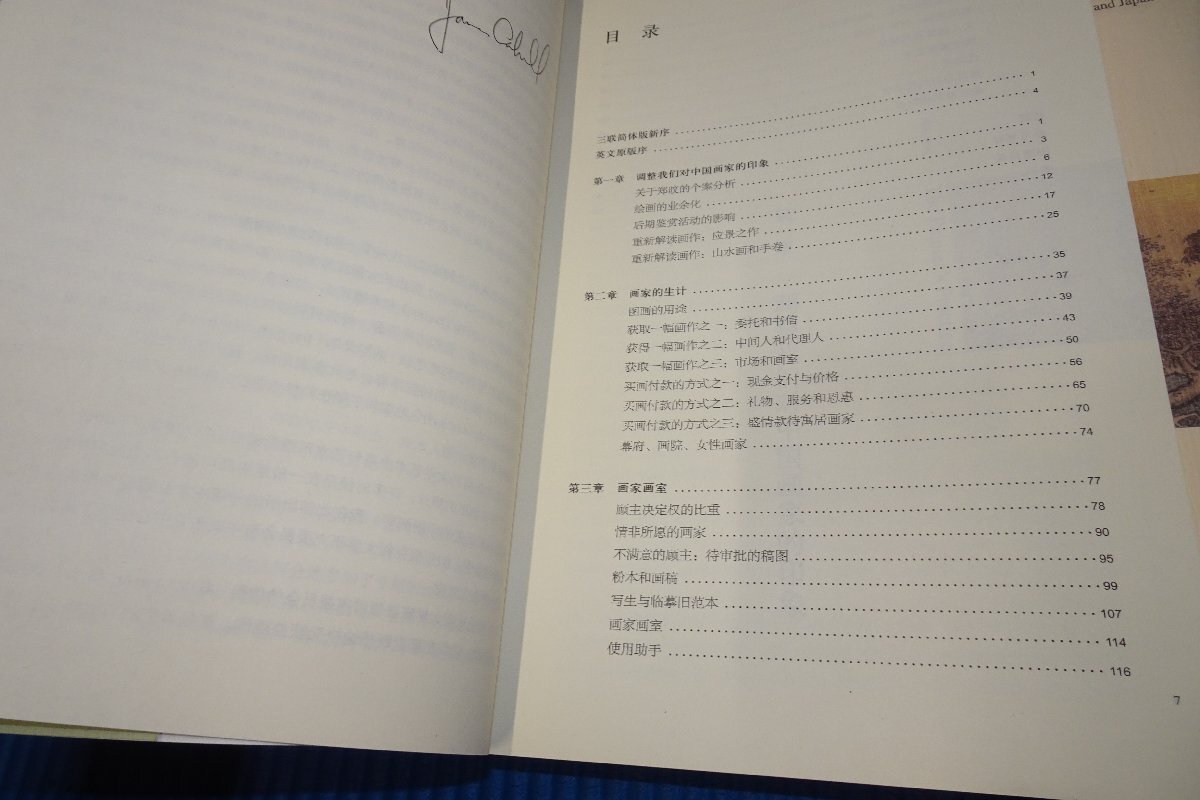 James Cahill
目 录
三联简体版新序 1
英文原版序 4
第一章 调整我们对中国画家的印象 1
关于郑旼的个案分析 3
绘画的业余化 6
后期鉴赏活动的影响 12
重新解读画作：应景之作 17
重新解读画作：山水画和手卷 25
第二章 画家的生计 35
图画的用途 37
获取一幅画作之一：委托和书信 39
获得一幅画作之二：中间人和代理人 43
获取一幅画作之三：市场和画室 50
买画付款的方式之一：现金支付与价格 56
买画付款的方式之二：礼物、服务和恩惠 65
买画付款的方式之三：盛情款待寓居画家 70
幕府、画院、女性画家 74
第三章 画家画室 77
顾主决定权的比重 78
情非所愿的画家 90
不满意的顾主：待审批的稿图 95
粉本和画稿 99
写生与临摹旧范本 107
画家画室 114
使用助手 116
7
and Japan